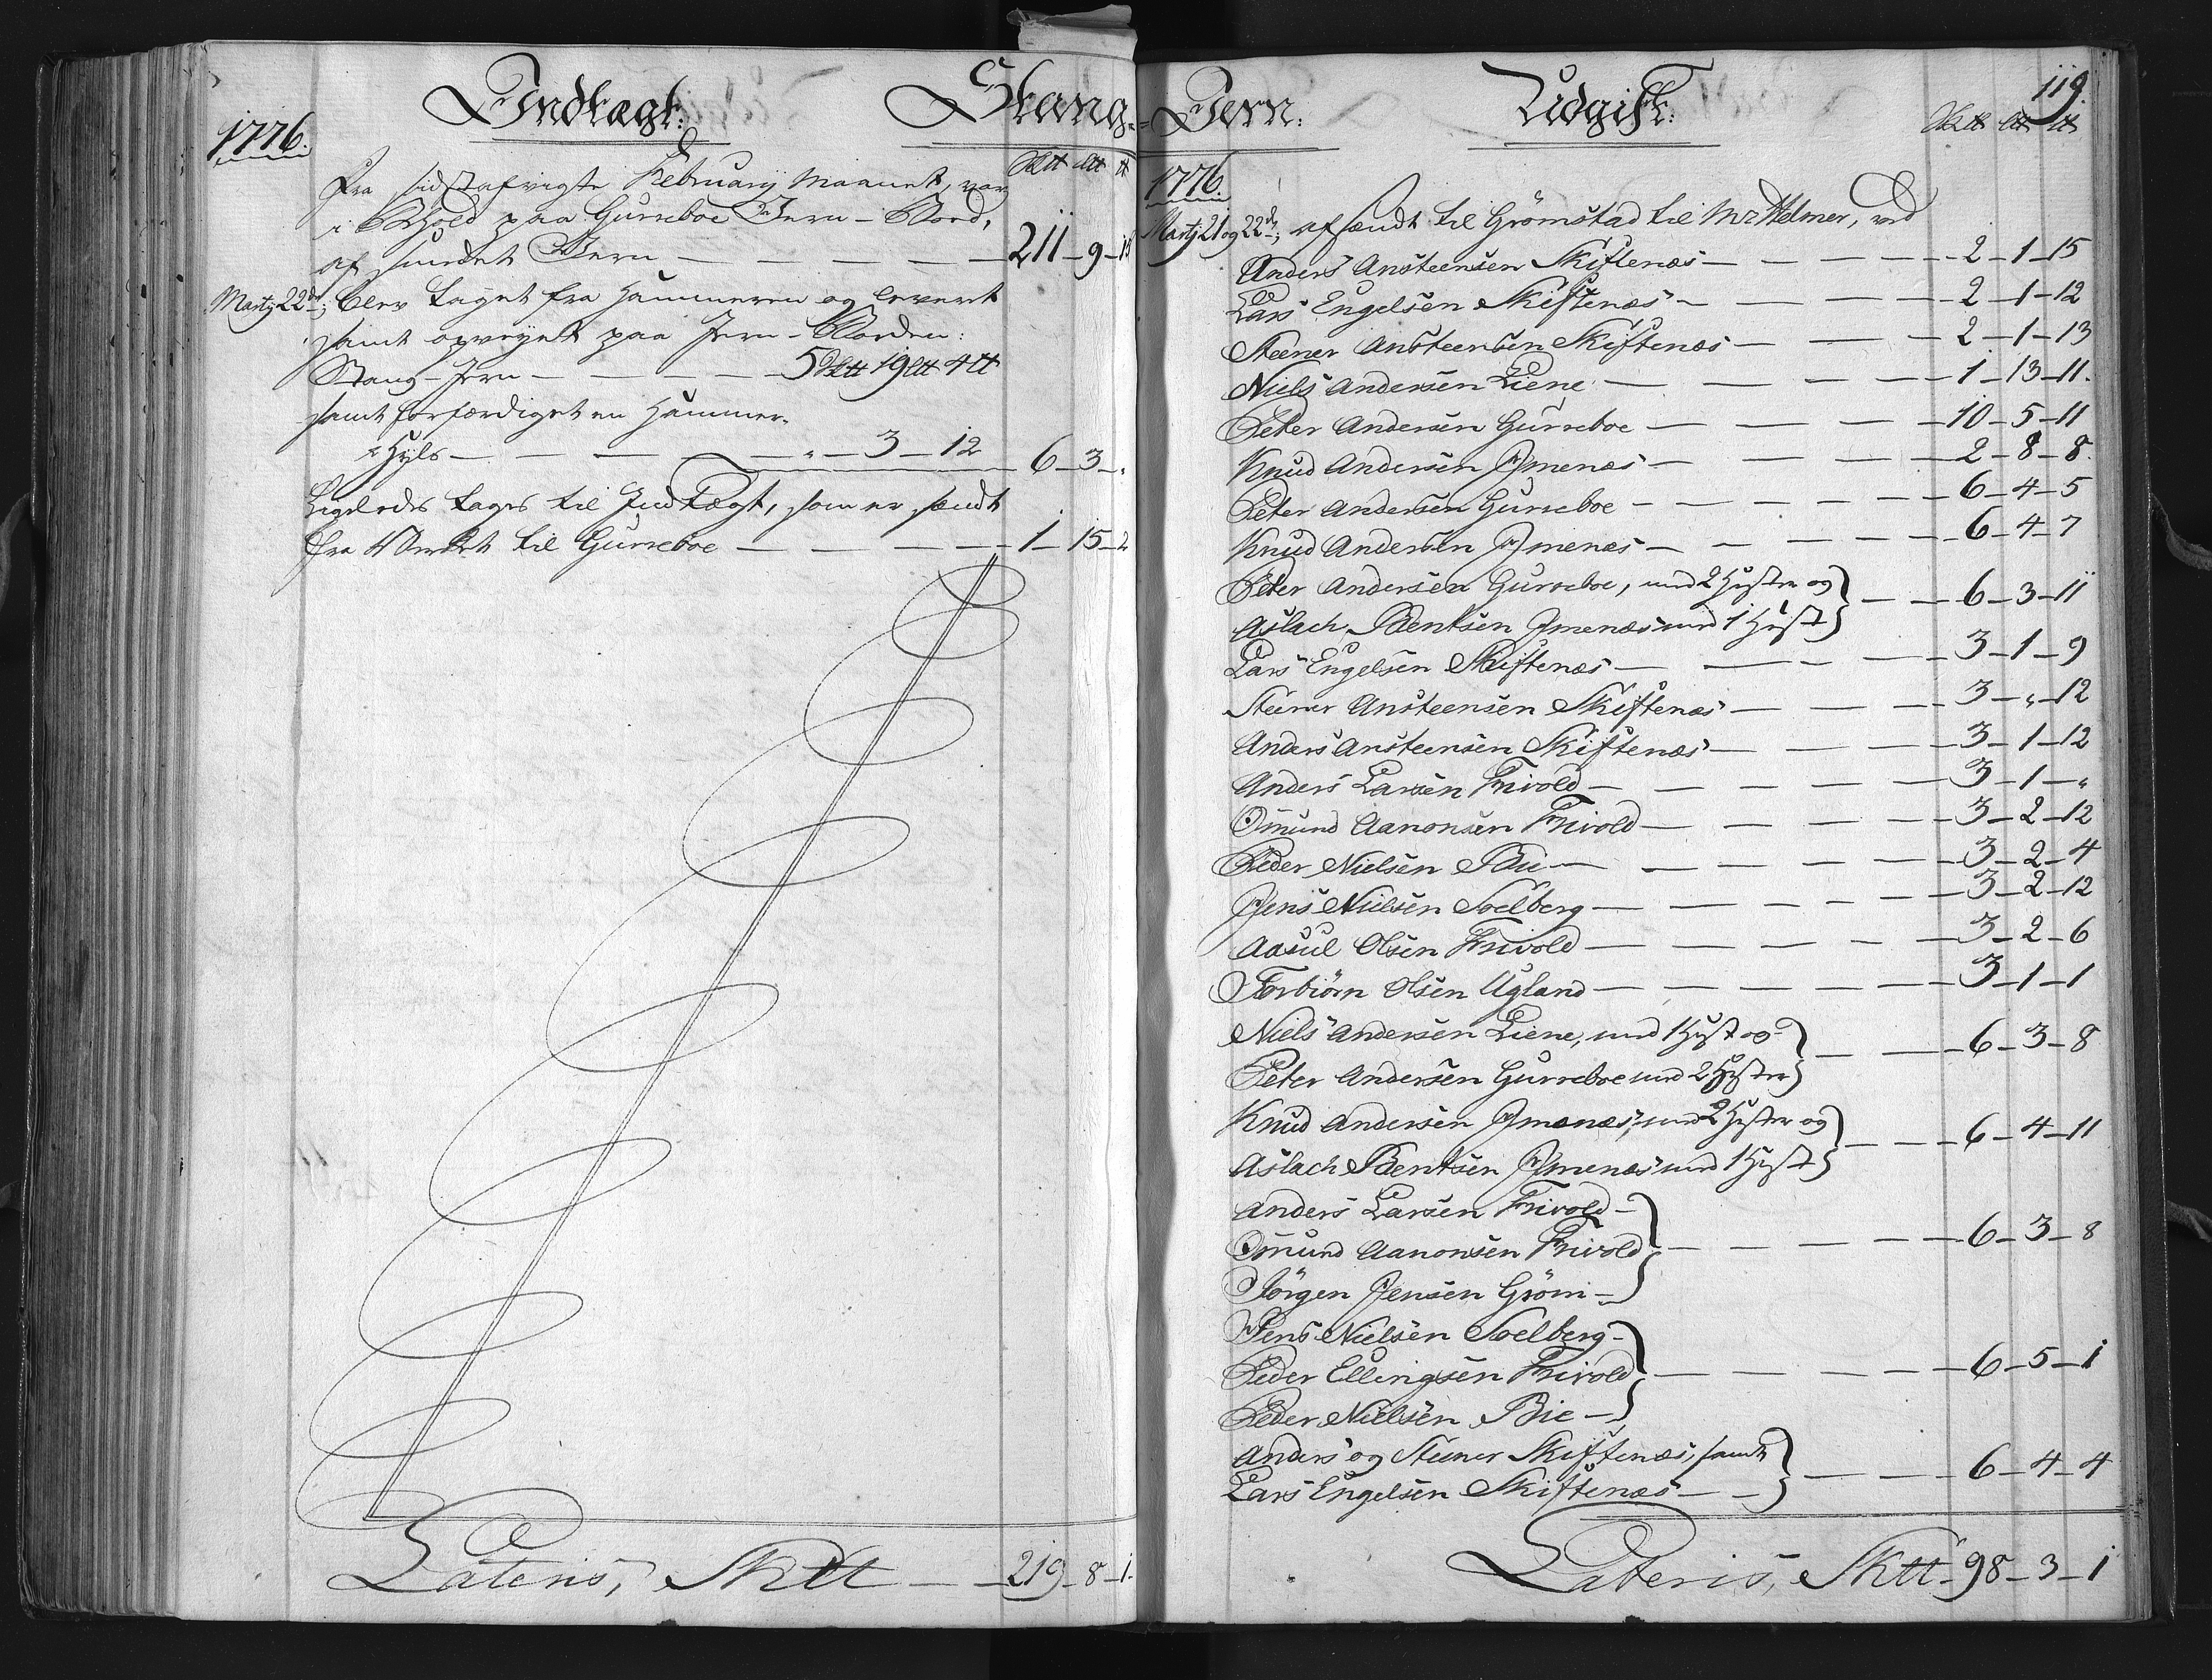 Indtægt: Stang-
1776.
Sktt Ltt tt
Fra sidstafvigte Februarij Maanet, var
i Behold paa Gurreboe Jern-Bord,
af smidet Jern — 211-9-15
Martij 22de; blev taget fra Hammeren og leveret
samt opveyet paa Jern-Borden:
Stang-Jern — 5 Sktt 19 Ltt 4 tt
samt forfærdiget en Hammer-
Hyls — " - 3 - 12 6-3-"
Ligeledes tages til Indtægt, som er sendt
fra Værket til Gurreboe — 1-15-2
Lateris, Sktt — 219-8-1.
Jern: Udgift: 119.
Sktt Ltt tt
1776.
Martij 21 og 22de; afsendt til Grømstad til Mr Helmer, ved
Anders Ansteensen Skiftenæs — 2-1-15
Lars Engelsen Skiftenæs — 2-1-12
Steener Ansteensen Skiftenæs — 2-1-13
Niels Andersen Liene — 1-13-11.
Peter Andersen Gurreboe — 10-5-11
Knud Andersen Jmenæs — 2-8-8.
Peter Andersen Gurreboe — 6-4-5
Knud Andersen Jmenæs — 6-4-7
Peter Andersen Gurreboe, med 2 Hæster og
Aslach Bentsen Jmenæs med 1 Hæst — 6-3-11
Lars Engelsen Skiftenæs — 3-1-9
Steener Ansteensen Skiftenæs — 3-"-12
Anders Ansteensen Skiftenæs — 3-1-12
Anders Larsen Frivold — 3-1-"
Omund Aanonsen Frivold — 3-2-12
Peder Nielsen Bie — 3-2-4
Jens Nielsen Soelberg — 3-2-12
Aasul Olsen Frivold — 3-2-6
Torbiörn Olsen Ugland — 3-1-1
Niels Andersen Liene, med 1 Hæst og
Peter Andersen Gurreboe med 2 Hæster — 6-3-8
Knud Andersen Jmenæs, med 2 Hæster og
Aslach Bentsen Jmenæs med 1 Hæst — 6-4-11
Anders Larsen Frivold
Omund Aanonsen Frivold — 6-3-8
Jörgen Jensen Gröm
Jens Nielsen Soelberg
Peder Ellingsen Frivold — 6-5-1
Peder Nielsen Bie
Anders og Steener Skiftenæs, samt
Lars Engelsen Skiftenæs — 6-4-4
Lateris, Sktt - 98-3-1